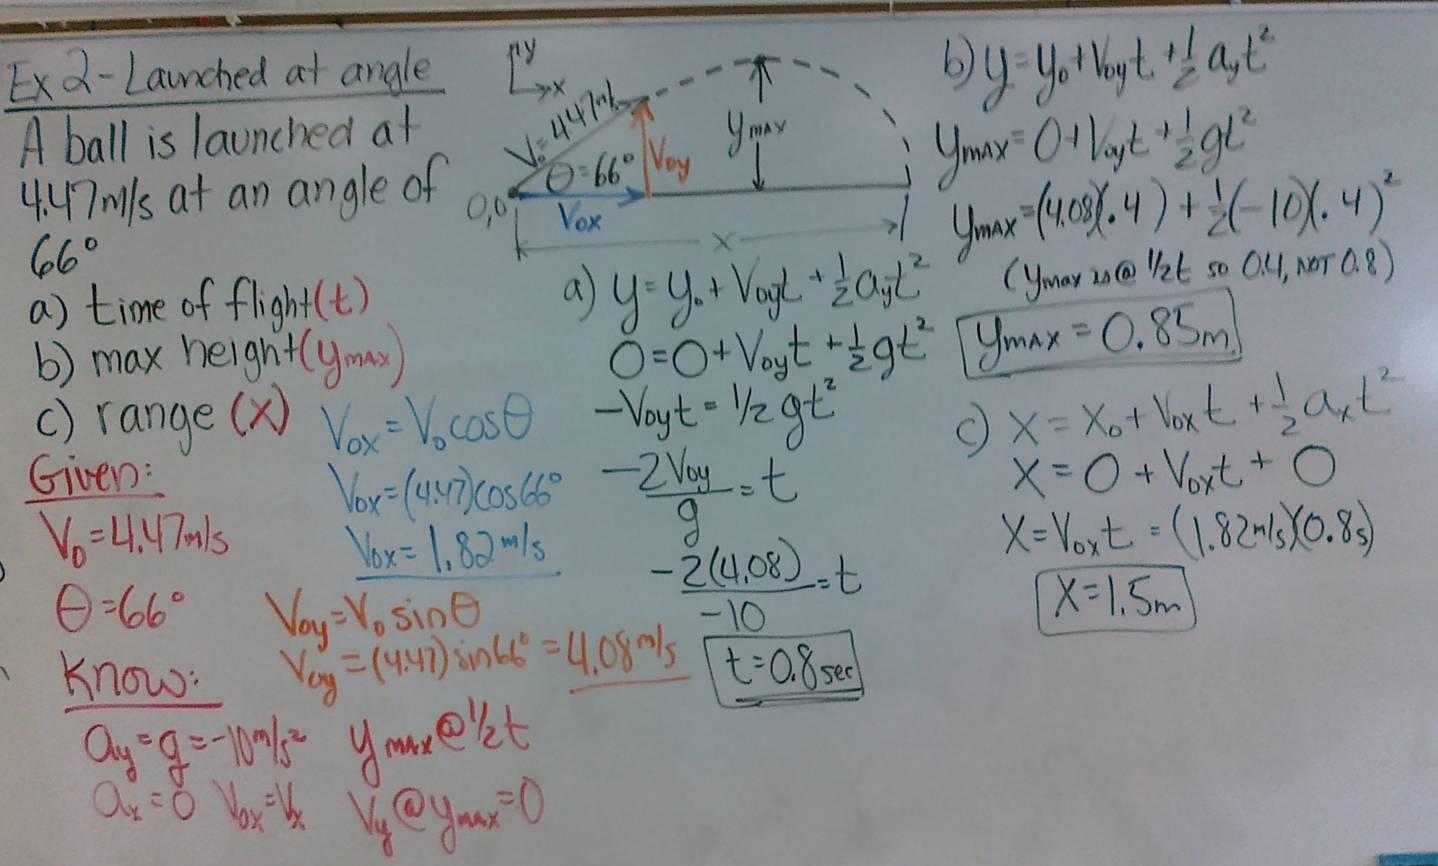 Ex 2 - Launched at angle
A ball is launched at
4.47m/s at an angle of
66°
a) time of flight (t)
b) max height (yMAX)
c) range (x)
Given:
V₀ = 4.47m/s
θ = 66°
Know:
ay = g = -10m/s²
ax = 0 V₀x = Vx
yMAX @ ½t
Vy @ yMAX = 0
V₀x = V₀cosθ
V₀x = (4.47)cos66°
V₀x = 1.82m/s
V₀y = V₀ sinθ
V₀y = (4.47)sin66° = 4.08m/s
y
x
V₀ = 4.47m/s
θ = 66°
V₀y
yMAX
0,0
V₀x
x
a) y = y₀ + V₀yt + ½ayt²
0 = 0 + V₀yt + ½gt²
-V₀yt = 1/2 gt²
-2V₀y/g = t
-2(4.08)/-10 = t
t = 0.8 sec
b) y = y₀ + V₀yt + ½ayt²
yMAX = 0 + V₀yt + ½gt²
yMAX = (4.08)(.4) + ½(-10)(.4)²
(yMAX is @ 1/2t so 0.4, NOT 0.8)
yMAX = 0.85m
c) x = x₀ + V₀xt + ½axt²
x = 0 + V₀xt + 0
x = V₀xt = (1.82m/s)(0.8s)
x = 1.5m